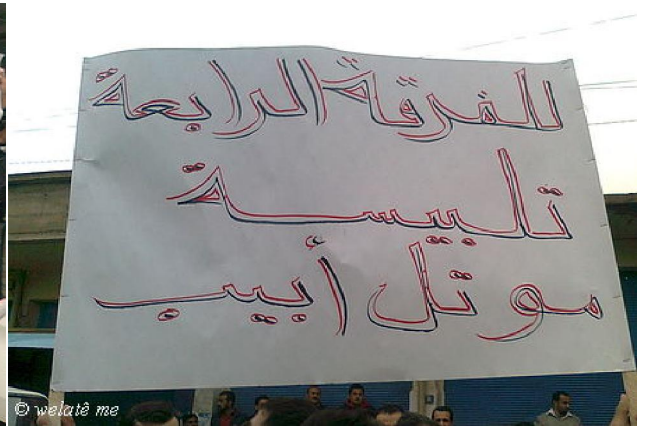 للفرقة الرابعة
تلبيسة
مو تل أبيب
© welatê me